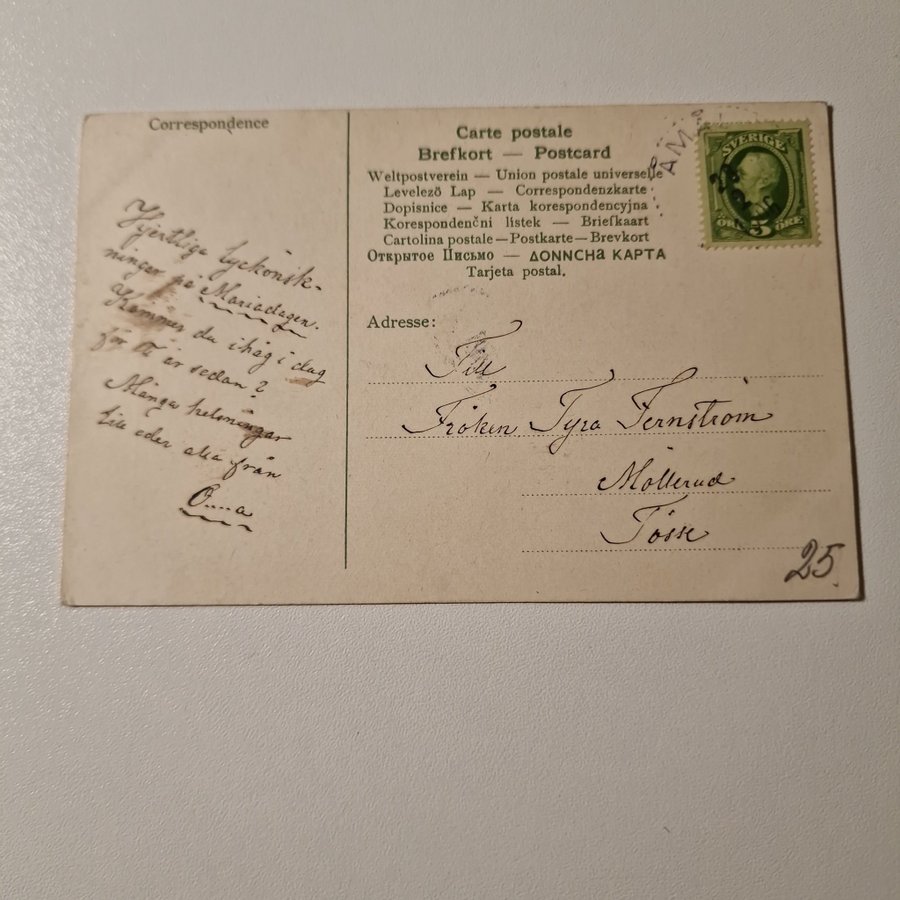 Correspondence
Hjertliga lyckönsk-
ningar på Mariadagen.
Kommer du ihåg i dag
för år sedan?
Många helsningar
till eder alla från
Carte postale
Brefkort — Postcard
Weltpostverein — Union postale universelle
Levelező Lap — Correspondenzkarte
Dopisnice — Karta korespondencyjna
Korespondenční lístek — Briefkaart
Cartolina postale — Postkarte — Brevkort
Открытое Письмо — ΔΟΝΝCHа ΚΑΡΤΑ
Tarjeta postal.
Adresse:
Till
Fröken Tyra Fernström
Möllerud
Tösse
25
ÅMÅ
SVERIGE
5